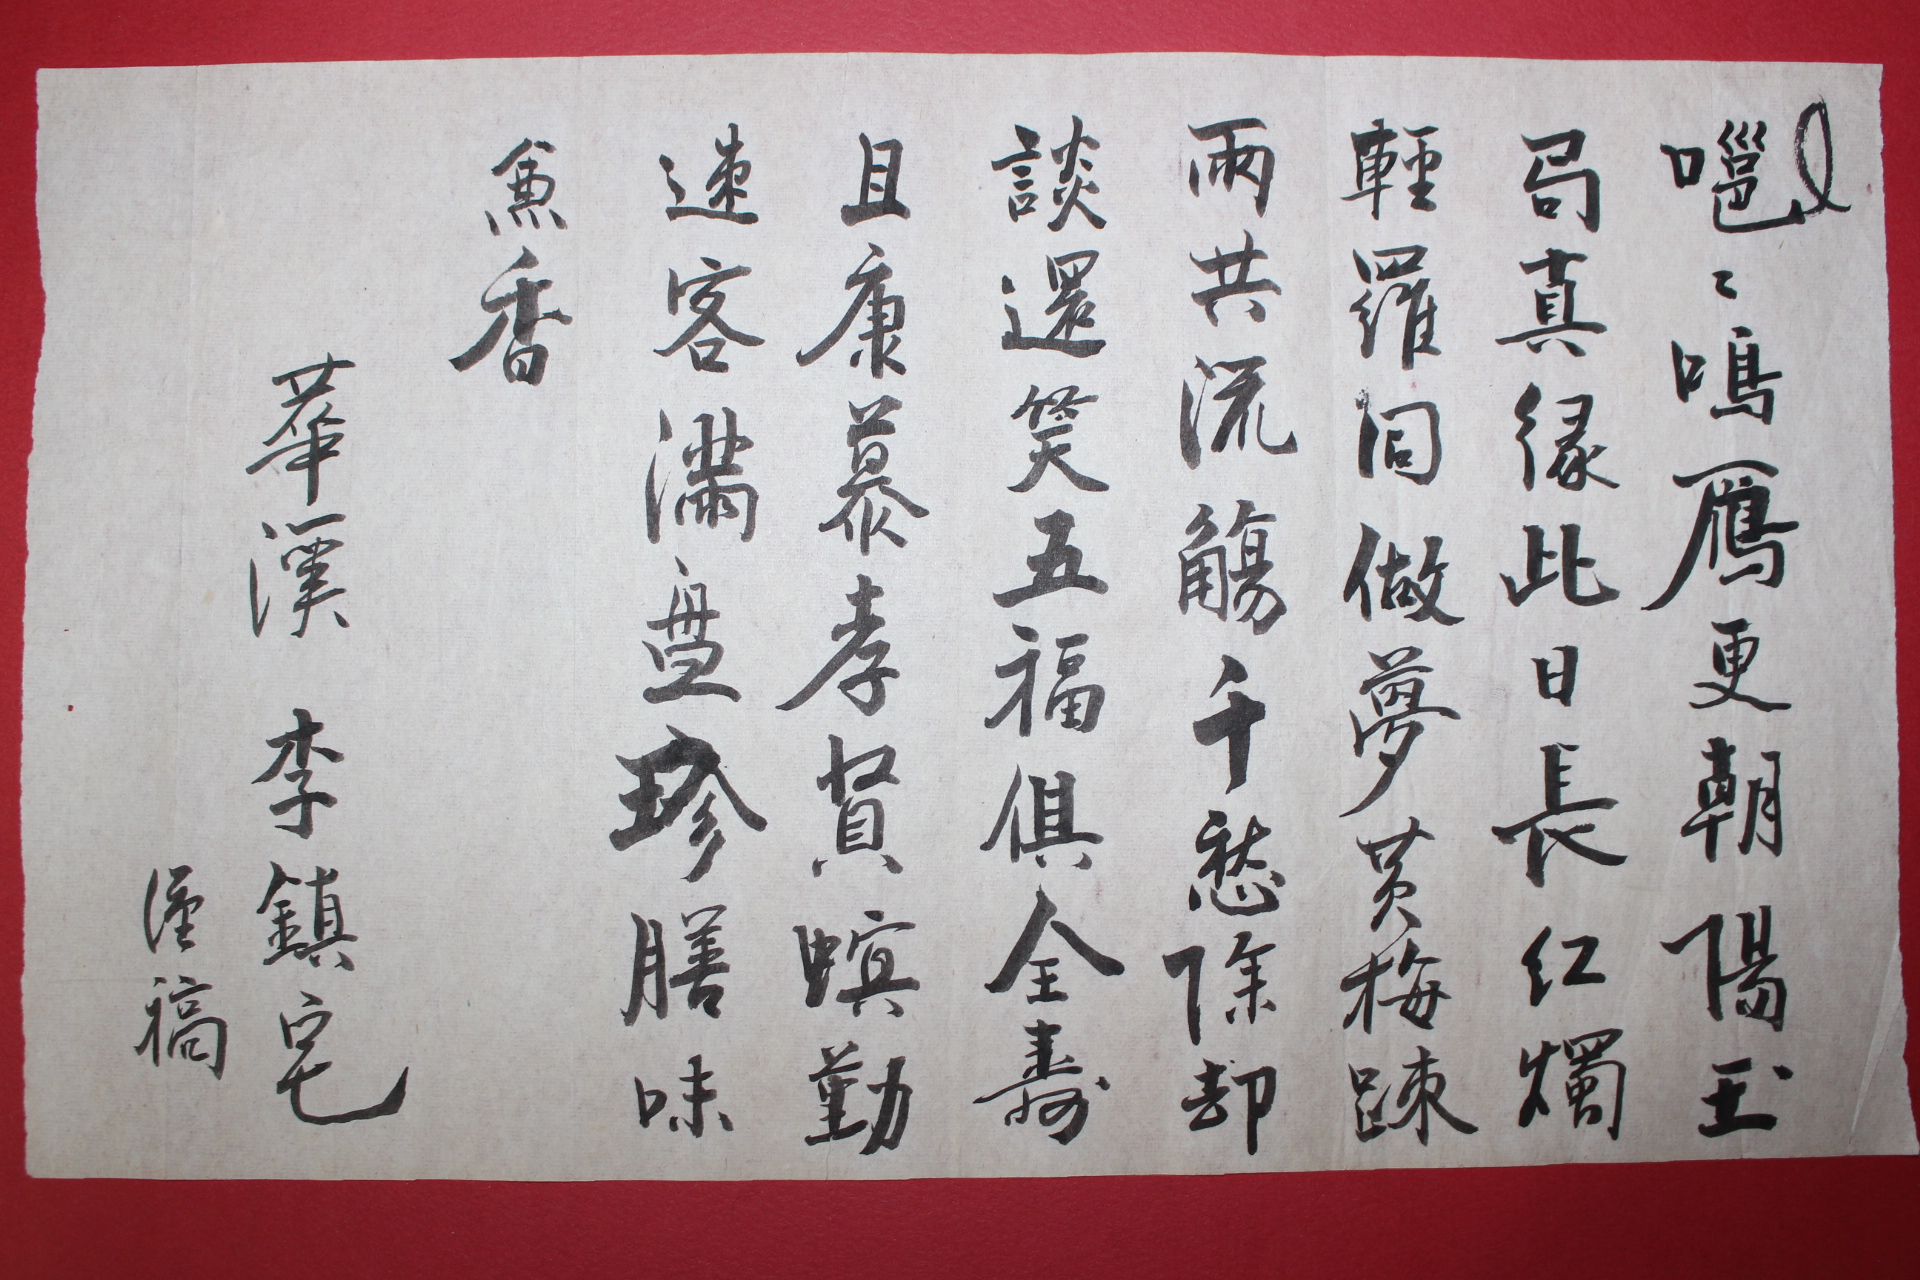 嗈〻鳴雁更朝陽玉
局真緣此日長紅燭
輕羅同做夢黃梅踈
雨共流觴千愁除却
談還笑五福俱全壽
且康慕孝賢螟勤
速客滿盤珍膳味
兼香
華溪 李鎮宅
謹稿